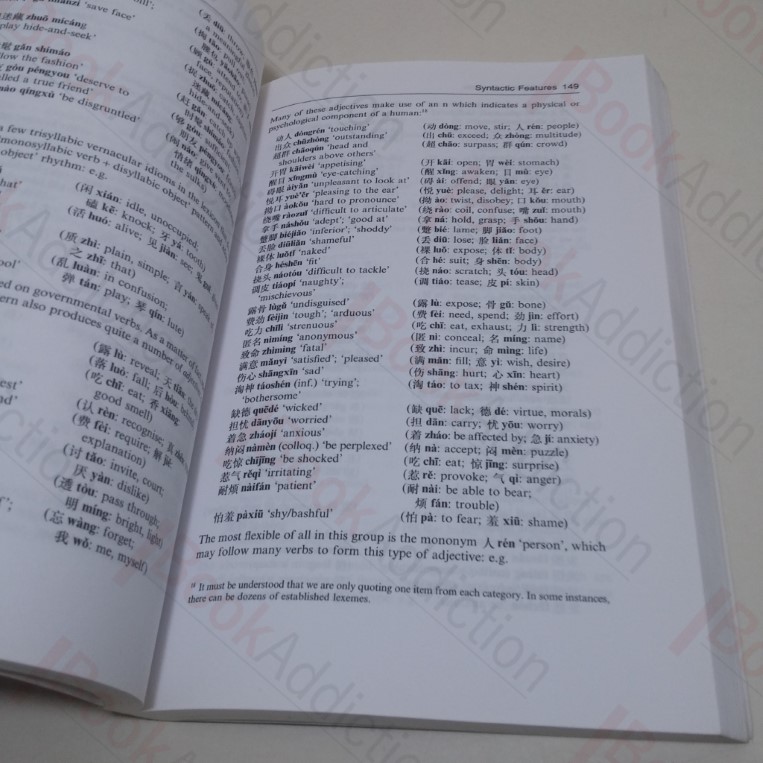 'save face'
迷藏 zhuō mícáng
play hide-and-seek'
gǎn shímáo
follow the fashion'
gòu péngyou 'deserve to
called a true friend'
nào qíngxù 'be disgruntled'
a few trisyllabic vernacular idioms in the
monosyllabic verb + disyllabic object
object' rhythm: e.g.
(闲 xián: idle, unoccupied;
磕 kē: knock; 牙 yá: tooth)
(活 huó: alive; 见 jiàn: see;
(质 zhì: plain, simple;
之 zhī: that)
(乱 luàn: in confusion;
弹 tán: play; 琴 qín: lute)
ed on governmental verbs. As a matter of
tern also produces quite a number of
(露 lù: reveal;
(落 luò: fall; 后 hòu:
(吃 chī: eat; 香 xiāng:
good smell)
(认 rèn: recognise;
(费 fèi: require; 解 jiě:
explanation)
(讨 tǎo: invite, court;
厌 yàn: dislike)
(透 tòu: pass through;
明 míng: bright, light)
(忘 wàng: forget;
我 wǒ: me, myself)
Syntactic Features 149
Many of these adjectives make use of an n which indicates a physical or
psychological component of a human:¹⁸
动人 dòngrén 'touching' (动 dòng: move, stir; 人 rén: people)
出众 chūzhòng 'outstanding' (出 chū: exceed; 众 zhòng: multitude)
超群 chāoqún 'head and (超 chāo: surpass; 群 qún: crowd)
shoulders above others'
开胃 kāiwèi 'appetising' (开 kāi: open; 胃 wèi: stomach)
醒目 xǐngmù 'eye-catching' (醒 xǐng: awaken; 目 mù: eye)
碍眼 àiyǎn 'unpleasant to look at' (碍 ài: offend; 眼 yǎn: eye)
悦耳 yuè'ěr 'pleasing to the ear' (悦 yuè: please, delight; 耳 ěr: ear)
拗口 àokǒu 'hard to pronounce' (拗 ào: twist, disobey; 口 kǒu: mouth)
绕嘴 ràozuǐ 'difficult to articulate' (绕 rào: coil, confuse; 嘴 zuǐ: mouth)
拿手 náshǒu 'adept'; 'good at' (拿 ná: hold, grasp; 手 shǒu: hand)
蹩脚 biéjiǎo 'inferior'; 'shoddy' (蹩 bié: lame; 脚 jiǎo: foot)
丢脸 diūliǎn 'shameful' (丢 diū: lose; 脸 liǎn: face)
裸体 luǒtǐ 'naked' (裸 luǒ: expose; 体 tǐ: body)
合身 héshēn 'fit' (合 hé: suit; 身 shēn: body)
挠头 náotóu 'difficult to tackle' (挠 náo: scratch; 头 tóu: head)
调皮 tiáopí 'naughty'; (调 tiáo: tease; 皮 pí: skin)
'mischievous'
露骨 lùgǔ 'undisguised' (露 lù: expose; 骨 gǔ: bone)
费劲 fèijìn 'tough'; 'arduous' (费 fèi: need, spend; 劲 jìn: effort)
吃力 chīlì 'strenuous' (吃 chī: eat, exhaust; 力 lì: strength)
匿名 nìmíng 'anonymous' (匿 nì: conceal; 名 míng: name)
致命 zhìmìng 'fatal' (致 zhì: incur; 命 mìng: life)
满意 mǎnyì 'satisfied'; 'pleased' (满 mǎn: fill; 意 yì: wish, desire)
伤心 shāngxīn 'sad' (伤 shāng: hurt; 心 xīn: heart)
淘神 táoshén (inf.) 'trying'; (淘 táo: to tax; 神 shén: spirit)
'bothersome'
缺德 quēdé 'wicked' (缺 quē: lack; 德 dé: virtue, morals)
担忧 dānyōu 'worried' (担 dān: carry; 忧 yōu: worry)
着急 zháojí 'anxious' (着 zháo: be affected by; 急 jí: anxiety)
纳闷 nàmèn (colloq.) 'be perplexed' (纳 nà: accept; 闷 mèn: puzzle)
吃惊 chījīng 'be shocked' (吃 chī: eat; 惊 jīng: surprise)
惹气 rěqì 'irritating' (惹 rě: provoke; 气 qì: anger)
耐烦 nàifán 'patient' (耐 nài: be able to bear;
烦 fán: trouble)
怕羞 pàxiū 'shy/bashful' (怕 pà: to fear; 羞 xiū: shame)
The most flexible of all in this group is the mononym 人 rén 'person', which
may follow many verbs to form this type of adjective: e.g.
¹⁸ It must be understood that we are only quoting one item from each category. In some instances,
there can be dozens of established lexemes.